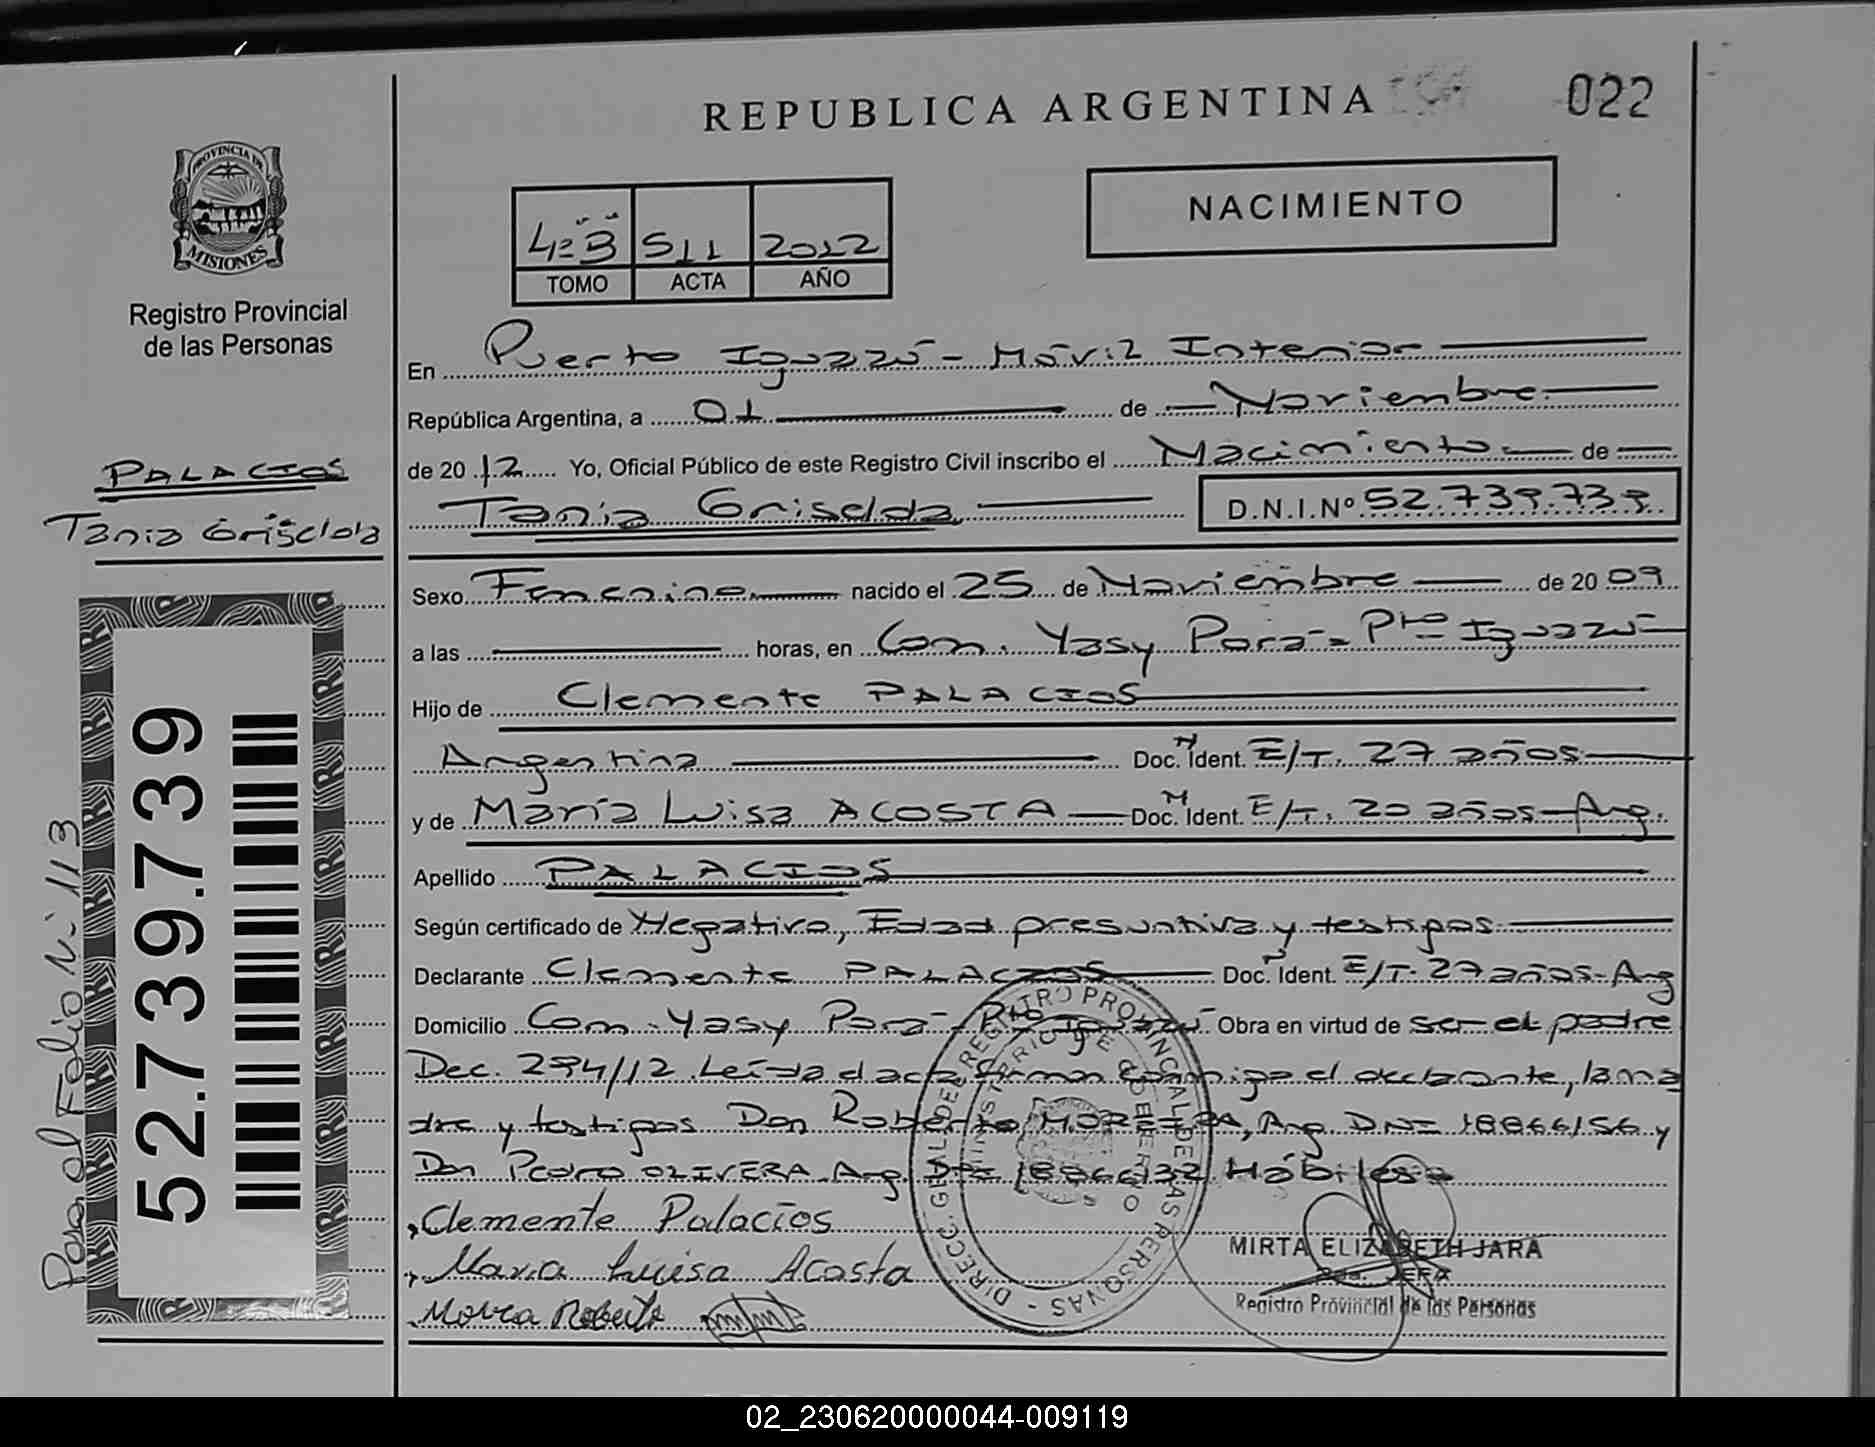 REPUBLICA ARGENTINA
022
PROVINCIA DE
MISIONES
Registro Provincial
de las Personas
NACIMIENTO
4º B 511 2012
TOMO ACTA AÑO
En Puerto Iguazú - Móvil Interior
República Argentina, a 01 de Noviembre
de 2012 Yo, Oficial Público de este Registro Civil inscribo el Nacimiento de
Tania Griselda D.N.I.Nº 52.739.739
PALACIOS
Tania Griselda
Sexo Femenino nacido el 25 de Noviembre de 20 09
a las horas, en Com. Yasy Porá - Pto Iguazú
Hijo de Clemente PALACIOS
Argentina Doc. N Ident. E/T. 27 años
y de María Luisa ACOSTA Doc. N Ident. E/T. 20 años - Arg.
Apellido PALACIOS
Según certificado de Negativo, Edad presuntiva y testigos
Declarante Clemente PALACIOS Doc. N Ident. E/T. 27 años - Arg
Domicilio Com. Yasy Porá - Pto Iguazú Obra en virtud de ser el padre
Dec. 294/12 Leída el acta firman conmigo el declarante, la ma
dre y testigos Don Roberto MOREIRA, Arg. DNI 18866156 y
Don Pedro OLIVERA Arg. DNI 18866132 Hábiles
Clemente Palacios
Maria Luisa Acosta
Roberto
DIRECC. GRAL DEL REGISTRO PROVINCIAL DE LAS PERSONAS
MINISTERIO DE GOBIERNO
MIRTA ELIZABETH JARA
JEFA
Registro Provincial de las Personas
52.739.739
Pasa al Folio Nº 113
02_230620000044-009119